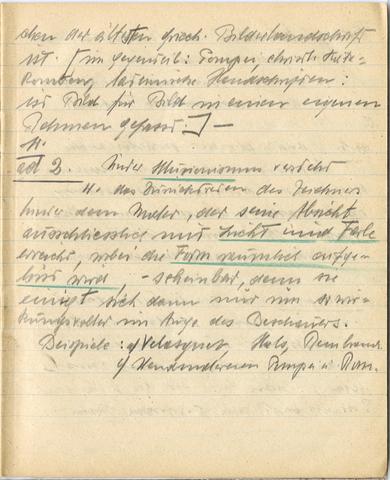 chen der ältesten griech. Bilderhandschrift
ist. [im Gegenteil: Pompei, christl.
lateinische Handschriften:
ist Bild für Bild in einen eigenen
Rahmen gefasst.] —
H.
ad 2. Unter Illusionismus versteht
H. das Zurücktreten des Zeichners
hinter dem Maler, der seine Absicht
ausschliesslich mit Licht und Farbe
erreicht, wobei die Form räumlich aufge-
löst wird, – scheinbar, denn sie
einigt sich dann nur um so wir-
kungsvoller im Auge des Beschauers.
Beispiele: a/ Velasquez, Hals, Rembrandt
b/ Wandmalereien Pompei u. Rom.